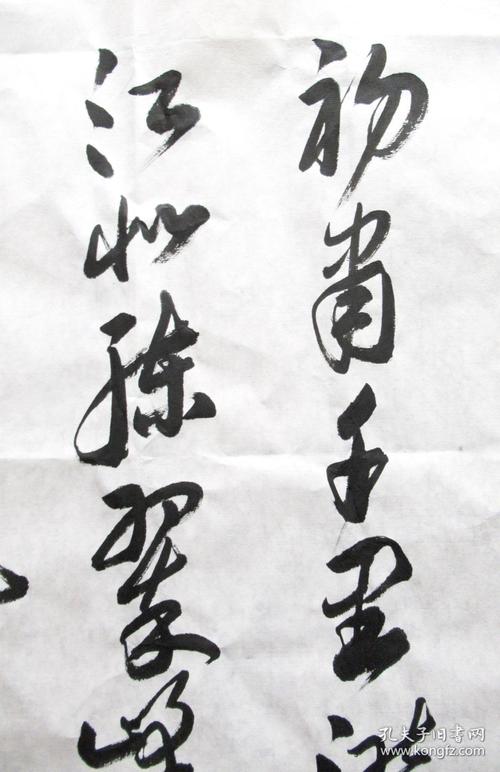 初肃千里澄
江似练翠峰
孔夫子旧书网
www.kongfz.com